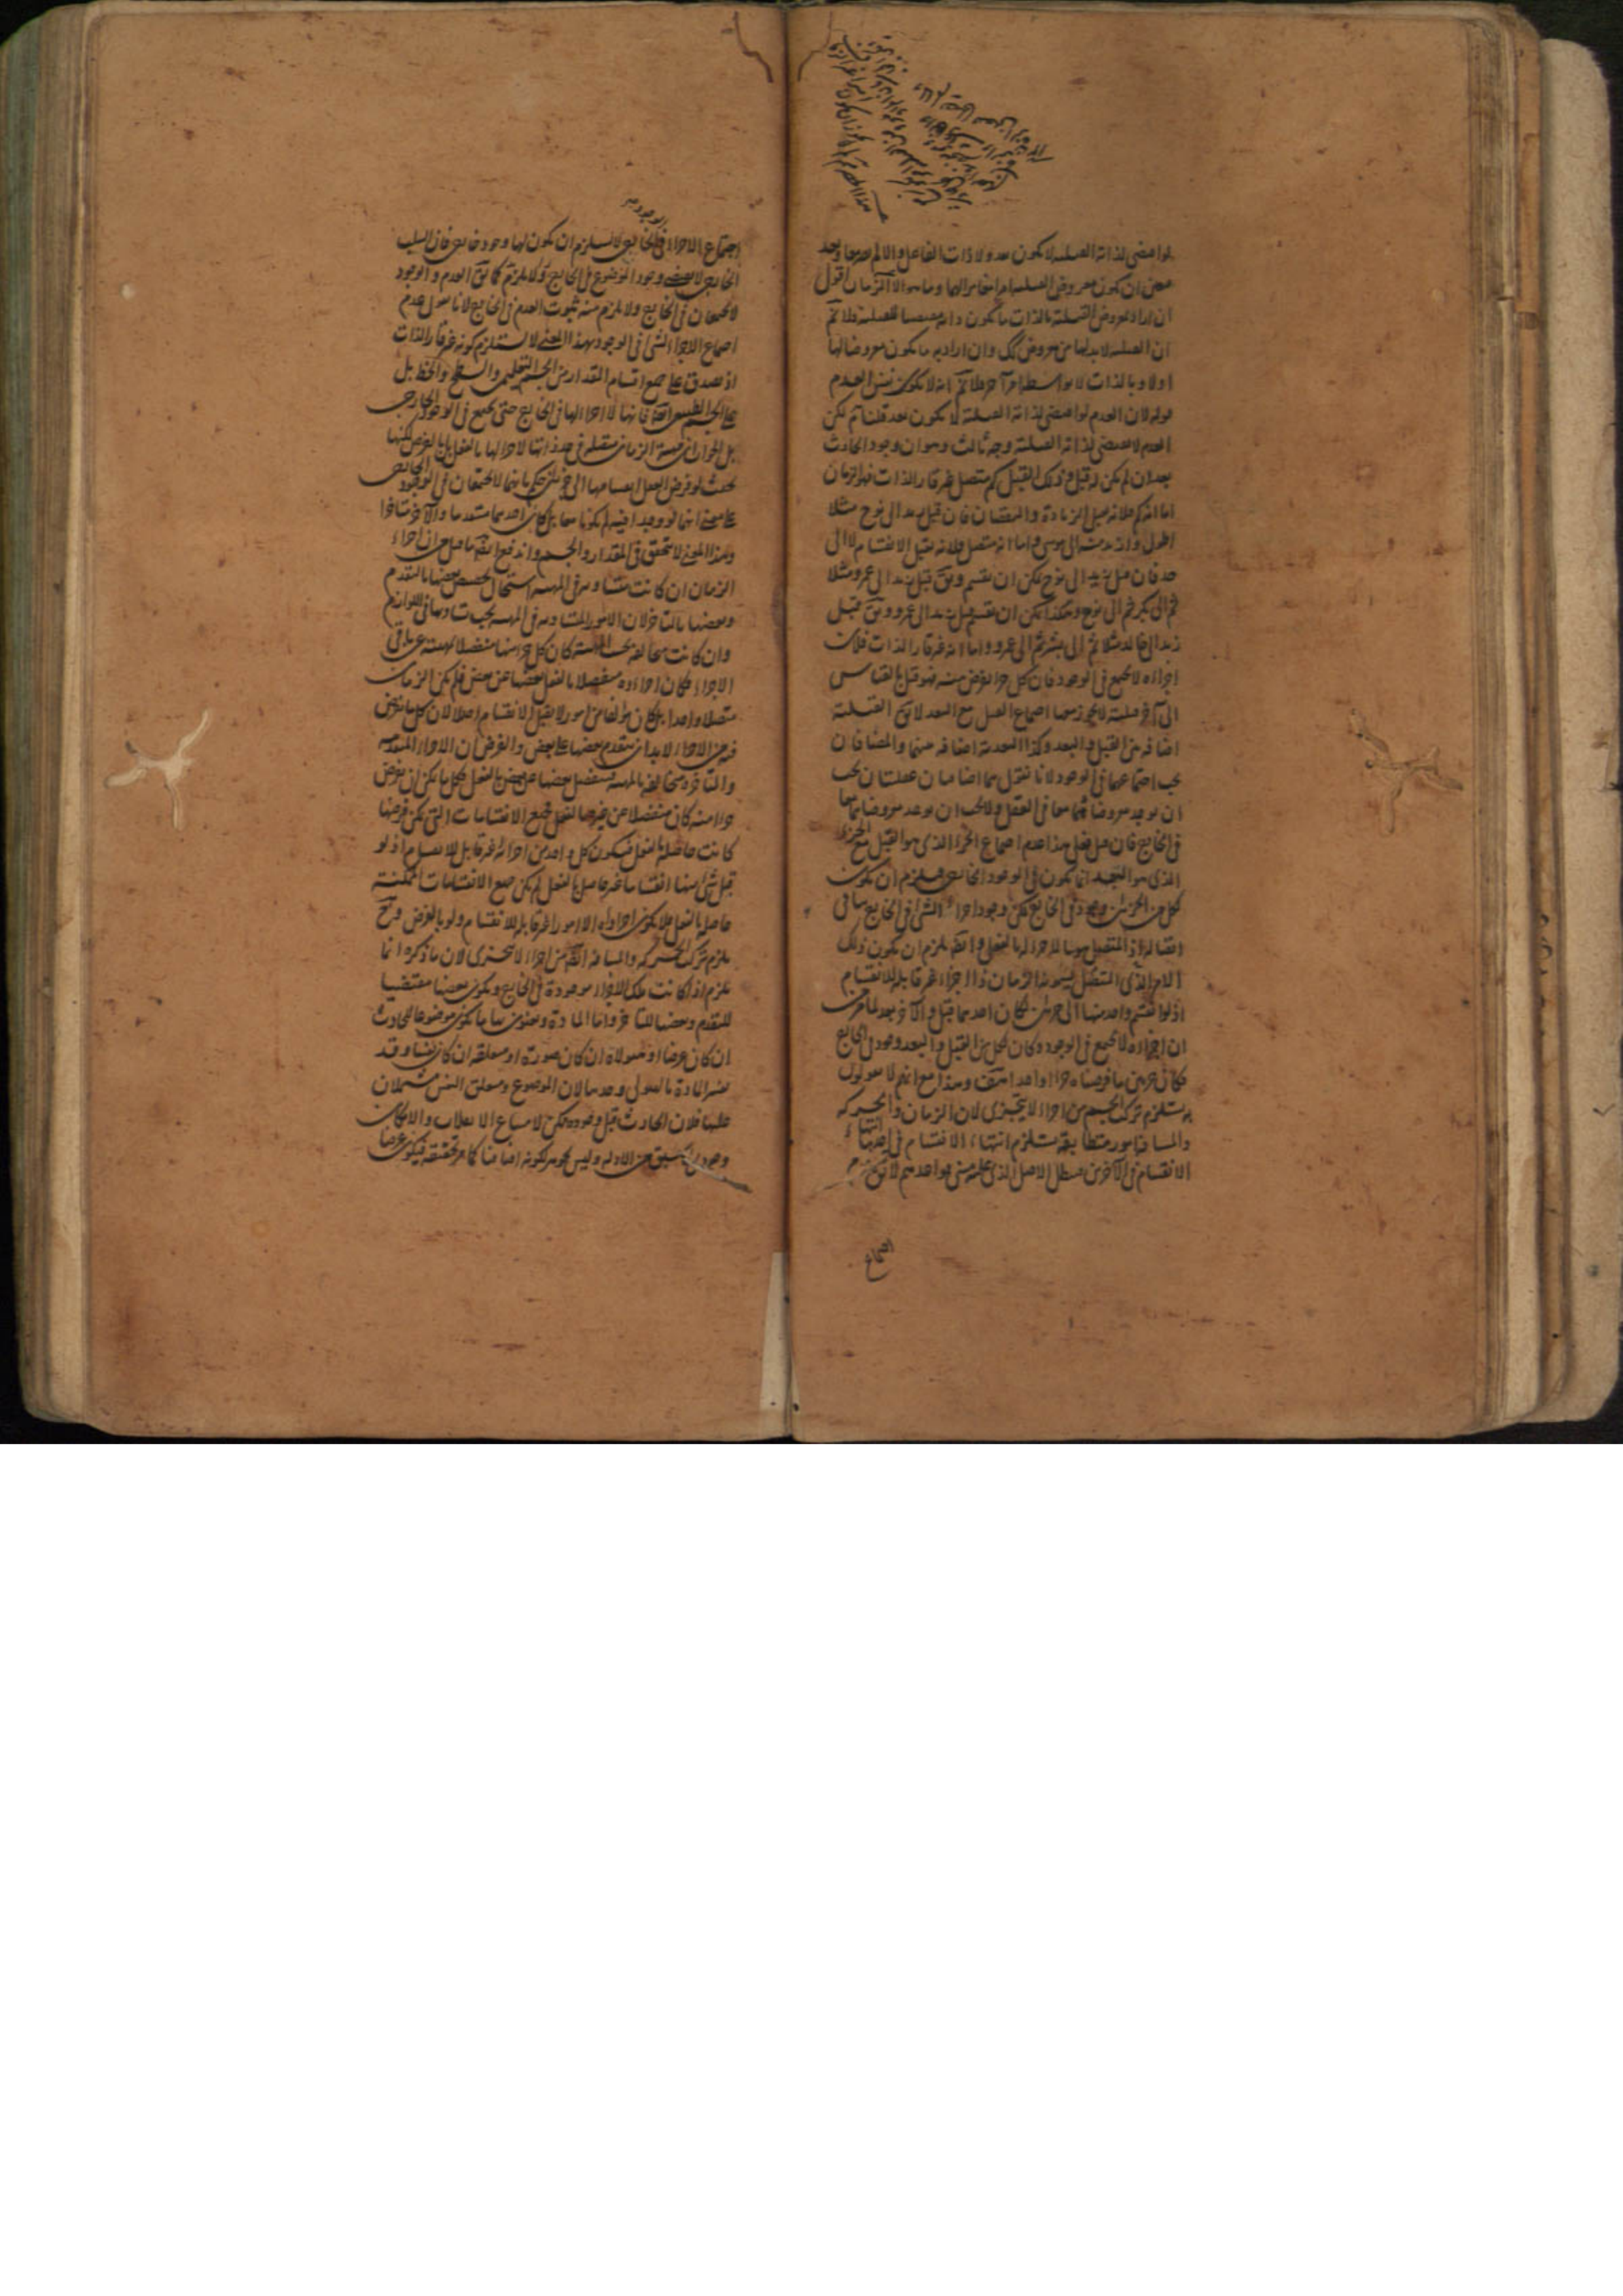 لو اقتضى لذاته القبلية لا يكون بعد ولا ذات الفاعل والا لم يصر معا وبعد
ان يكون معروض القبلية امرا مغايرا لهما وما هو الا الزمان اقول
ان اراد بمعروض القبلية بالذات ما يكون ذاته مقتضيا للقبلية فلا نم
ان القبلية لابد لها من معروض كك وان اراد به ما يكون معروضا لها
اولا وبالذات لا بواسطة امر آخر فلا نم انه لا يكون نفس العدم
قوله لان العدم لو اقتضى لذاته القبلية لا يكون بعد قلنا نم لكن
العدم لا يقتضى لذاته القبلية وجه ثالث وهو ان وجود الحادث
بعد ان لم يكن له قبل وذلك القبل كم متصل غير قار الذات فهو الزمان
اما انه كم فلانه يقبل الزيادة والنقصان فان قبل زيد الى نوح مثلا
اطول وازيد منه الى موسى واما انه متصل فلانه يقبل الانقسام لا الى
حد فان قبل زيد الى نوح يمكن ان يقسم ويق قبل زيد الى عمرو مثلا
ثم الى بكر ثم الى نوح وهكذا يمكن ان يقسم قبل زيد الى عمرو ويق قبل
زيد الى خالد مثلا ثم الى بشر ثم الى عمرو واما انه غير قار الذات فلان
اجزاءه لا يجتمع فى الوجود فان كل جزء يفرض منه فهو قبل بالقياس
الى آخر قبلية لا يجوز معها اجتماع القبل مع البعد لا يق القبلية
اضافة بين القبل والبعد وكذا البعدية اضافة بينهما والمضافان
يجب اجتماعهما فى الوجود لانا نقول هما اضافتان عقليتان يجب
ان يوجد معروضاهما معا فى العقل ولا يجب ان يوجد معروضاهما معا
فى الخارج فان قيل فعلى هذا عدم اجتماع الجزء الذى هو القبل مع الجزء
الذى هو البعد انما يكون فى الوجود الخارجى فيلزم ان يكون
لكل من الجزئين وجود فى الخارج لكن وجود اجزاء الشئ فى الخارج ينافى
اتصاله اذ المتصل هو ما لا جزء له بالفعل وايضا يلزم ان يكون ذلك
الامر الذى المتصل يسمونه الزمان ذا اجزاء غير قابلة للانقسام
اذ لو انقسم واحد منها الى جزئين لكان احدهما قبل والآخر بعد لما مر من
ان اجزاءه لا يجتمع فى الوجود وكان لكل من القبل والبعد وجود فى الخارج
فكان جزئين ما فرضناه جزءا واحدا هف وهذا مع انهم لا يقولون
به يستلزم تركب الجسم من اجزاء لا يتجزى لان الزمان والحركة
والمسافة امور متطابقة يستلزم انتهاء الانقسام فى احدها انتهاء
الانقسام فى الآخرين فيبطل الاصل الذى عليه مبنى قواعدهم لا يق
اجتماع
اجتماع الاجزاء فى الخارج لا يستلزم ان يكون لها وجود خارجى فان السلب
الخارجى لا يقتضى وجود الموضوع فى الخارج ولا يلزم كما يق العدم والوجود
لا يجتمعان فى الخارج ولا يلزم منه ثبوت العدم فى الخارج لانا نقول عدم
اجتماع الاجزاء الشئ فى الوجود بهذا المعنى لا يستلزم كونه غير قار الذات
اذ يصدق على جميع اقسام المقدار من الجسم التعليمى والسطح والخط بل
على الجسم الطبيعى ايضا فانها لا اجزاء لها فى الخارج حتى يجتمع فى الوجود الخارجى
بل الجواب ان قبلية الزمان متصلة فى حد ذاتها لا جزء لها بالفعل بل بالفرض لكنها
بحيث لو فرض العقل انقسامها الى جزئين حكم بانهما لا يجتمعان فى الوجود الخارجى
على معنى انهما لو وجدا فيه لم يكونا معا بل كان احدهما متقدما والآخر متاخرا
وهذا المعنى لا يتحقق فى المقدار والجسم واندفع ايضا ما قيل من ان اجزاء
الزمان ان كانت متساوية فى المهية استحال تخصص بعضها بالتقدم
وبعضها بالتاخر لان الامور المتساوية فى المهية يجب تساويها فى اللوازم
وان كانت مخالفة بحسب المهية كان كل جزء منها منفصلا بمهيته عن باقى
الاجزاء فكان اجزاءه منفصلا بالفعل بعضها عن بعض فلم يكن الزمان
متصلا واحدا بل كان مؤلفا من امور لا يقبل الانقسام اصلا لان كل ما يفرض
فيه من الاجزاء لابد ان يتقدم بعضها على بعض والفرض ان الاجزاء المتقدمة
والمتاخرة مخالفة بالمهية فينفصل بعضها عن بعض بالفعل فكل ما يمكن ان يفرض
جزءا منه كان منفصلا عن غيره بالفعل فجميع الانقسامات التى يمكن فرضها
كانت حاصلة بالفعل فيكون كل واحد من اجزائه غير قابل للانقسام اذ لو
قبل شئ منها انقساما غير حاصل بالفعل لم يكن جميع الانقسامات الممكنة
حاصلا بالفعل فلا يكون اجزاءه الا امورا غير قابلة للانقسام ولو بالفرض وح
يلزم تركب الحركة والمسافة ايضا من اجزاء لا يتجزى لان ما ذكره انما
يلزم اذا كانت تلك الاجزاء موجودة فى الخارج ويكون بعضها مقتضيا
للتقدم وبعضها للتاخر واما المادة ويعنون بها ما يكون موضوعا للحادث
ان كان عرضا او هيولاه ان كان صورة او متعلقه ان كان نفسا وقد
يفسر المادة بالهيولى وحدها لان الموضوع ومتعلق النفس مشتملان
عليها فلان الحادث قبل وجوده ممكن لامتناع الانقلاب والامكان
وجودى لما سبق من الادلة وليس بجوهر لكونه اضافيا كما مر تحقيقه فيكون عرضا